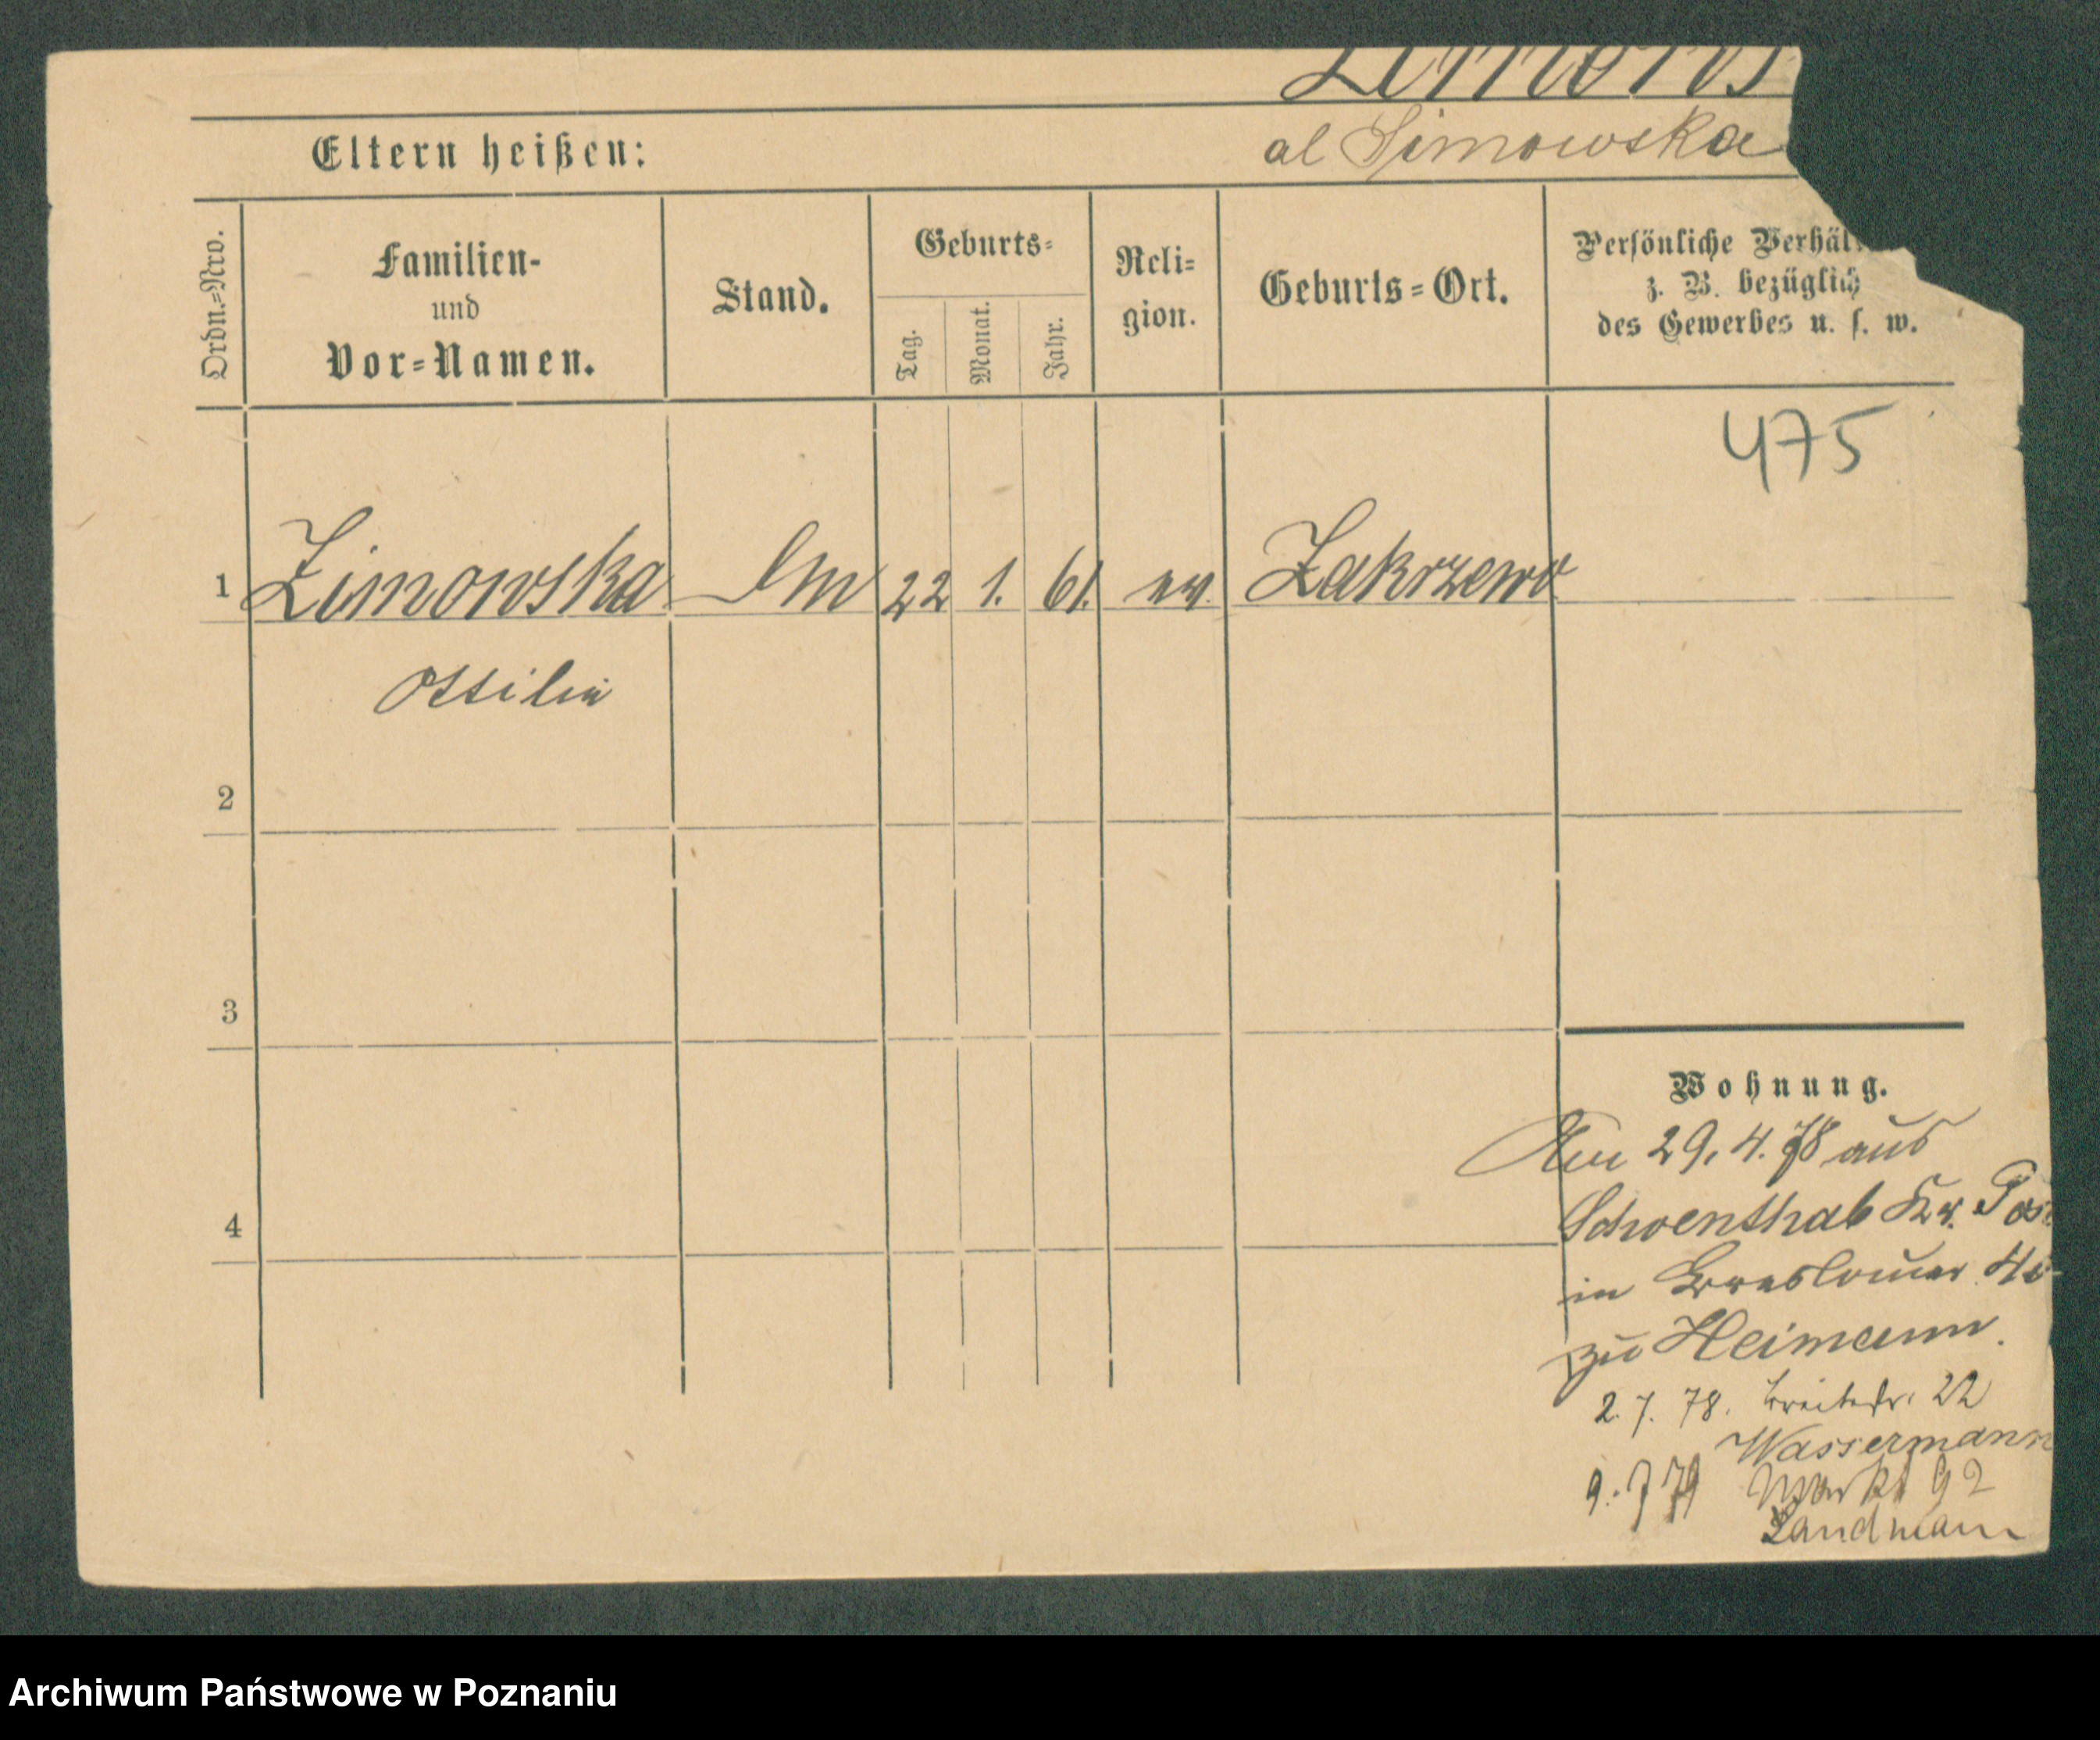 Zimows
al Simowska
Eltern heißen:
Ordn.=Nro.
Familien-
und
Vor=Namen.
Stand.
Geburts=
Tag.
Monat.
Jahr.
Reli=
gion.
Geburts=Ort.
Persönliche Verhäl
z. B. bezüglich
des Gewerbes u. s. w.
475
1 Zimowska 22 1. 61. ev. Zakrzewo
Ottilie
2
3
4
Wohnung.
29. 4. 78 aus
Schoenthal Kr. Pos
in Breslauer
zu Heimann.
2. 7. 78. Breitestr. 22
Wassermann
9. 7 79 Markt 92
Landmann
Archiwum Państwowe w Poznaniu